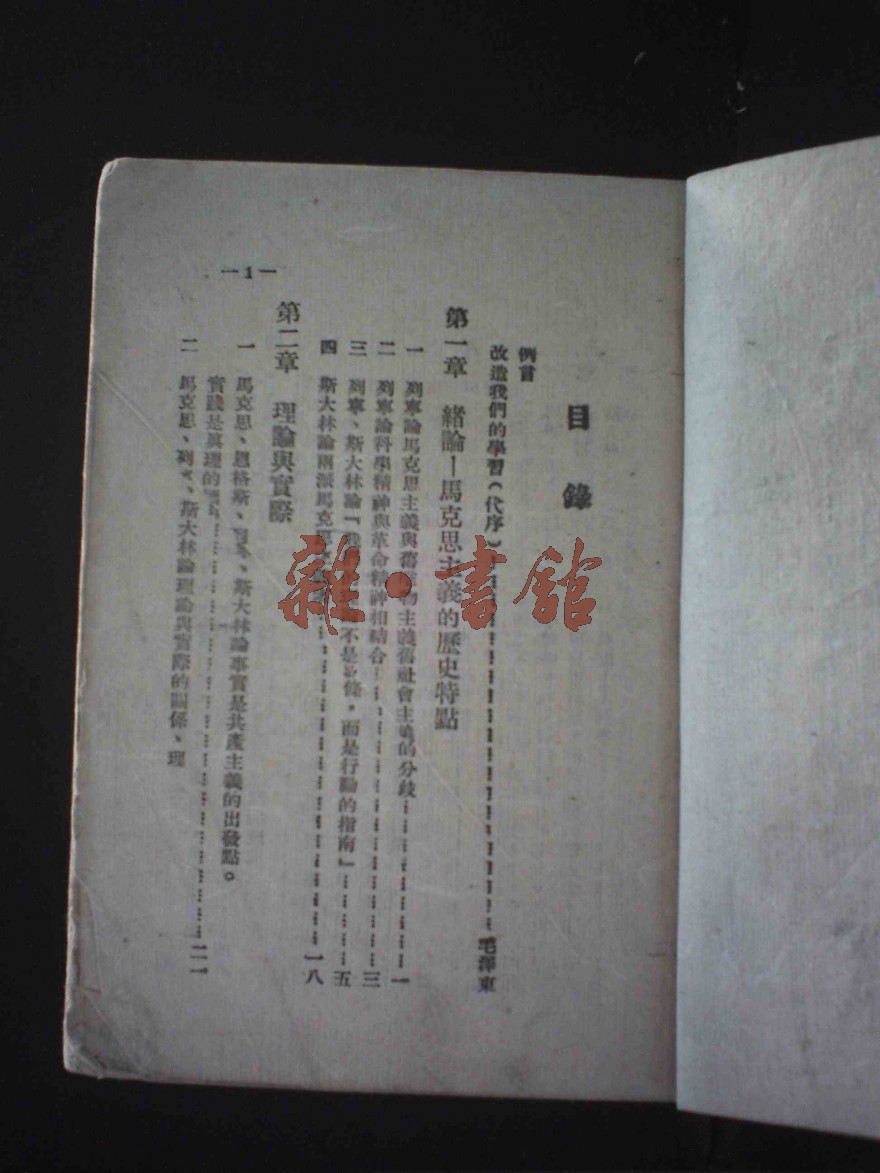 目錄
例言
改造我們的學習(代序)……毛澤東
第一章 緒論—馬克思主義的歷史特點
一 列寧論馬克思主義與舊物主義舊社會主義的分歧……一
二 列寧論科學精神與革命精神相結合……三
三 列寧、斯大林論「不是條,而是行動的指南」……五
四 斯大林論兩派馬克思……一八
第二章 理論與實際
一 馬克思、恩格斯、斯大林論事實是共產主義的出發點。
實踐是真理的……二一
二 馬克思、列、斯大林論理論與實際的關係、理
—1—
雜·書館